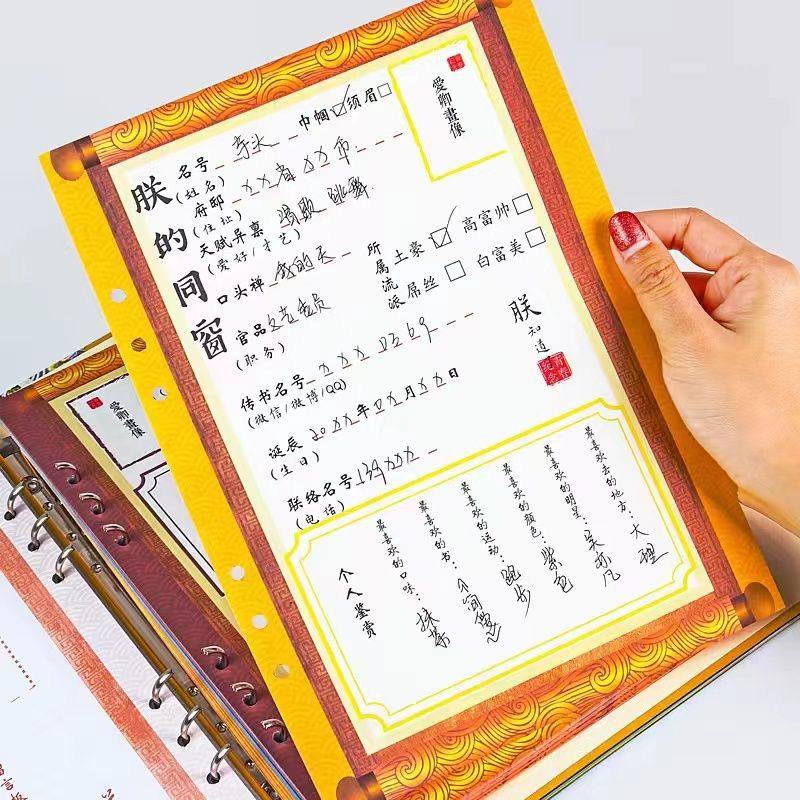 朕的同窗
名号
(姓名)
巾帼 须眉
府邸 XX省XX市
(住址)
天赋异禀 唱歌 跳舞
(爱好/才艺)
口头禅 我的天
官品 文艺委员
(职务)
传书名号 XXX0369
(微信/微博/QQ)
诞辰 20XX年0X月XX日
(生日)
联络名号 139XXXX
(电话)
所属流派
土豪 高富帅
屌丝 白富美
愛卿畫像
朕
知道
个人鉴赏
最喜欢的口味:抹茶
最喜欢的书:
最喜欢的运动:跑步
最喜欢的颜色:紫色
最喜欢的明星:吴亦凡
最喜欢去的地方:大理
愛卿畫像